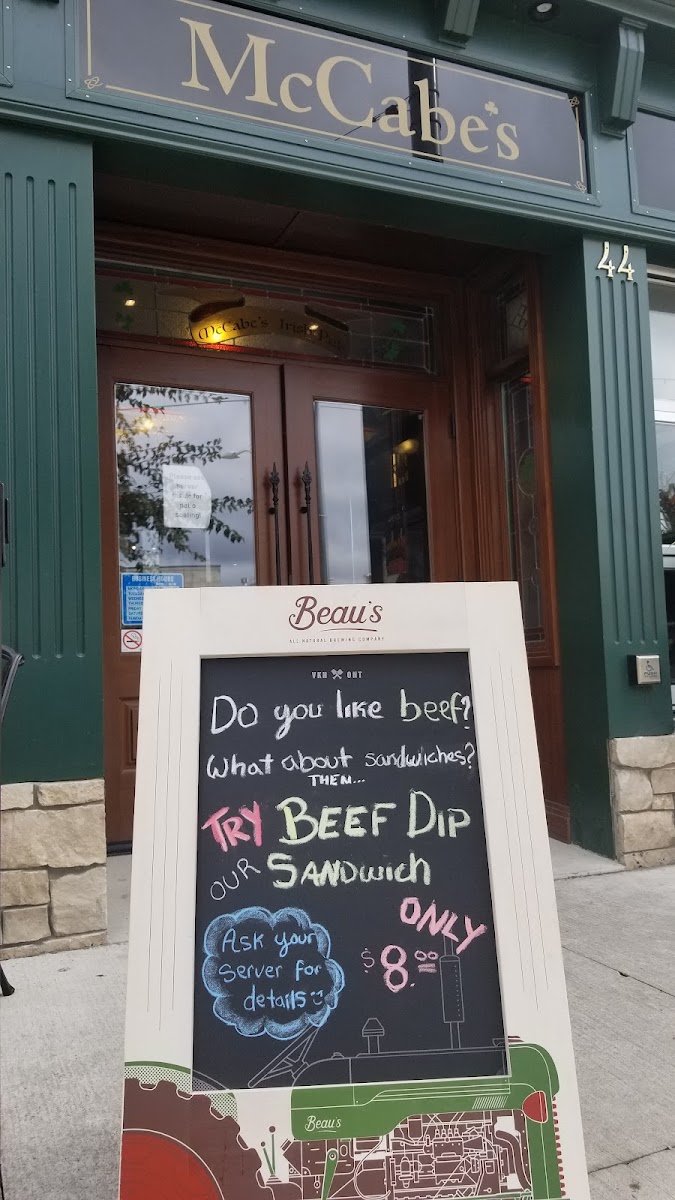 McCabe's
44
McCabe's Irish Pub
BUSINESS HOURS
Beau's
ALL NATURAL BREWING COMPANY
VKH ONT
Do you like beef?
What about sandwiches?
THEN...
TRY BEEF DIP
OUR SANDwich
ONLY
$8.00
Ask your
server for
details
Beau's